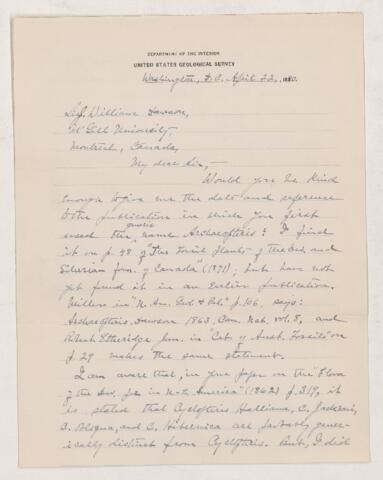 DEPARTMENT OF THE INTERIOR
UNITED STATES GEOLOGICAL SURVEY
Washington, D.C. April 22, 1890.
Sir William Dawson,
McGill University,
Montreal, Canada,
My dear Sir,—
Would you be kind
enough to give me the date and reference
to the publication in which you first
used the generic name Archaeopteris? I find
it on p. 48 of "The Fossil plants of the Dev. and
Silurian form. of Canada" (1871); but have not
yet found it in an earlier publication.
Miller in "N. Am. Geol. & Pal." p. 106, says:
Archaeopteris, Dawson 1863, Can. Nat. vol. 8, and
Robert Etheridge Jun. in "Cat. of Aust. Fossils" on
p. 29 makes the same statement.
I am aware that, in your paper on the "Flora
of the Dev. in N-E America" (1862) p. 319, it
is stated that Cyclopteris Halliana, C. Jacksoni,
and C. Hibernica are probably gener-
ically distinct from Cyclopteris. But, I did